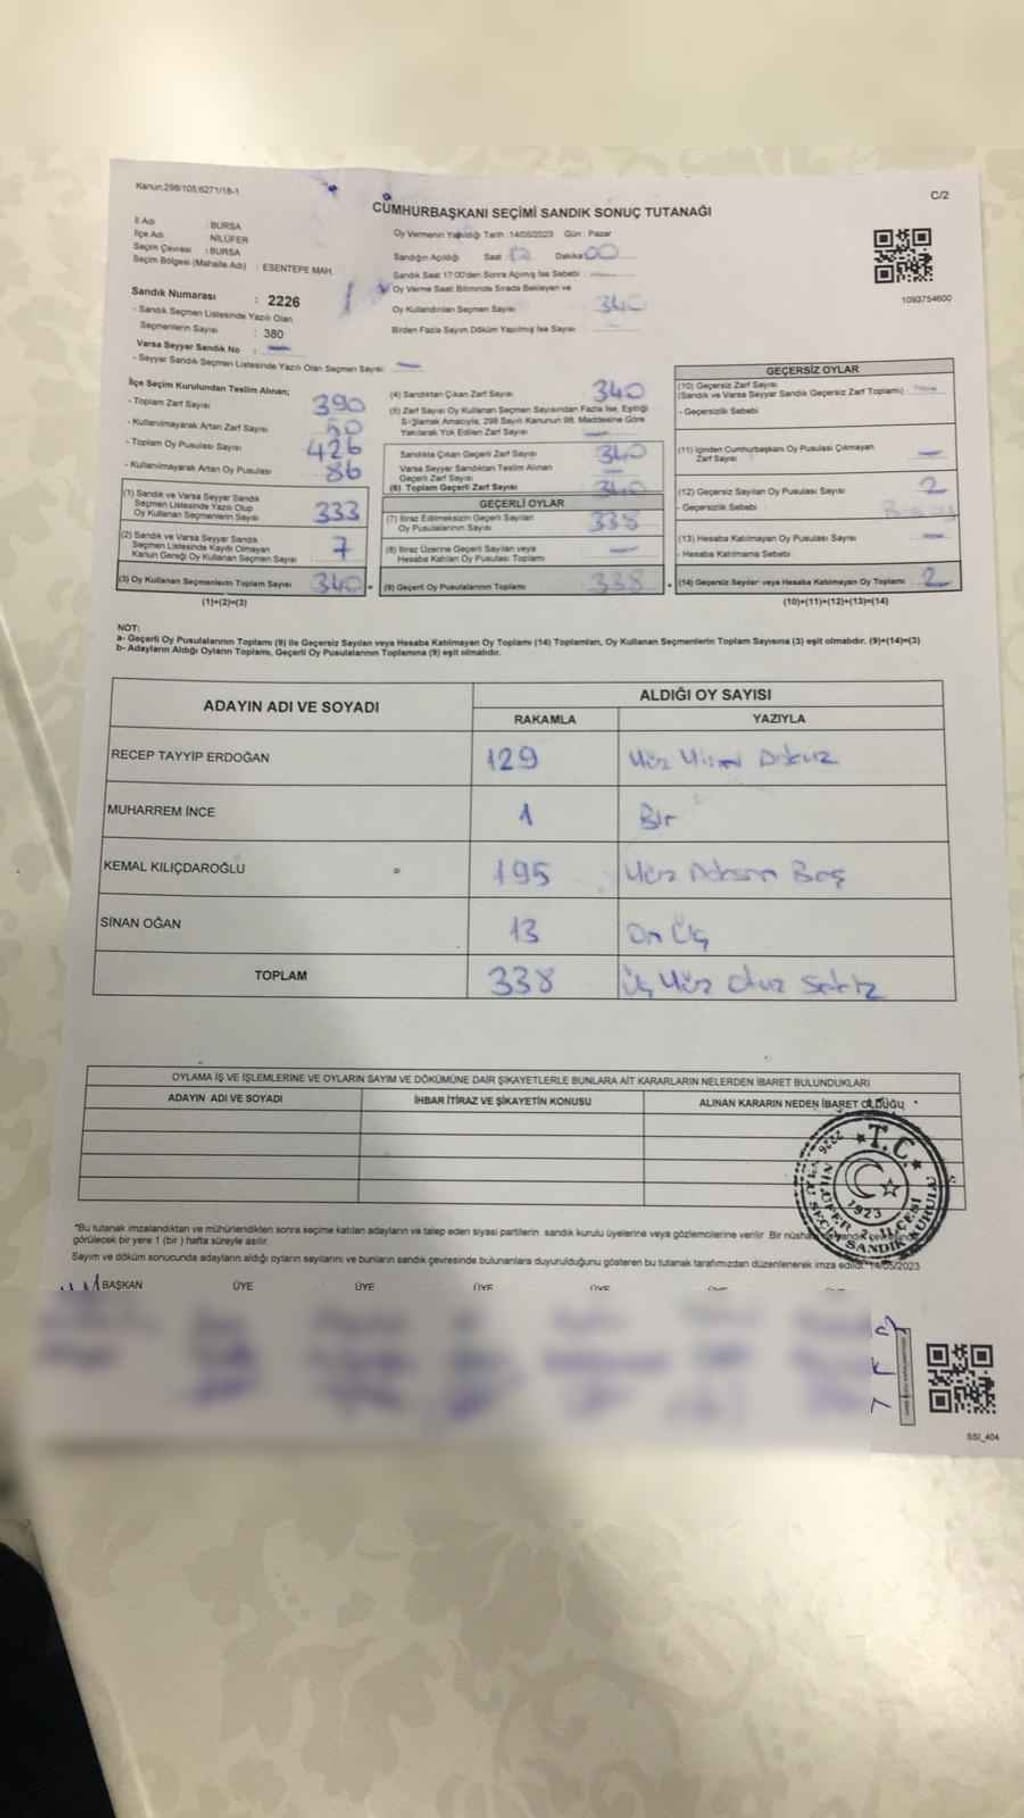 Kanun:298/105;6271/18-1
C/2
CUMHURBAŞKANI SEÇİMİ SANDIK SONUÇ TUTANAĞI
İl Adı : BURSA
İlçe Adı : NİLÜFER
Seçim Çevresi : BURSA
Seçim Bölgesi (Mahalle Adı) : ESENTEPE MAH.
Sandık Numarası : 2226
- Sandık Seçmen Listesinde Yazılı Olan
Seçmenlerin Sayısı : 380
Varsa Seyyar Sandık No : —
- Seyyar Sandık Seçmen Listesinde Yazılı Olan Seçmen Sayısı —
Oy Vermenin Yapıldığı Tarih :14/05/2023 Gün : Pazar
Sandığın Açıldığı Saat Dakika 00
Sandık Saat 17:00'den Sonra Açılmış İse Sebebi
Oy Verme Saati Bitiminde Sırada Bekleyen ve
Oy Kullandırılan Seçmen Sayısı 340
Birden Fazla Sayım Döküm Yapılmış İse Sayısı
1093754600
İlçe Seçim Kurulundan Teslim Alınan;
- Toplam Zarf Sayısı 390
- Kullanılmayarak Artan Zarf Sayısı 50
- Toplam Oy Pusulası Sayısı 426
- Kullanılmayarak Artan Oy Pusulası 86
(1) Sandık ve Varsa Seyyar Sandık
Seçmen Listesinde Yazılı Olup
Oy Kullanan Seçmenlerin Sayısı 333
(2) Sandık ve Varsa Seyyar Sandık
Seçmen Listesinde Kayıtlı Olmayan
Kanun Gereği Oy Kullanan Seçmen Sayısı 7
(3) Oy Kullanan Seçmenlerin Toplam Sayısı 340
(1)+(2)=(3)
(4) Sandıktan Çıkan Zarf Sayısı 340
(5) Zarf Sayısı Oy Kullanan Seçmen Sayısından Fazla İse, Eşitliği
Sağlamak Amacıyla, 298 Sayılı Kanunun 98. Maddesine Göre
Yakılarak Yok Edilen Zarf Sayısı —
Sandıkta Çıkan Geçerli Zarf Sayısı 340
Varsa Seyyar Sandıktan Teslim Alınan
Geçerli Zarf Sayısı —
(6) Toplam Geçerli Zarf Sayısı 340
GEÇERLİ OYLAR
(7) İtiraz Edilmeksizin Geçerli Sayılan
Oy Pusulalarının Sayısı 338
(8) İtiraz Üzerine Geçerli Sayılan veya
Hesaba Katılan Oy Pusulası Toplamı —
(9) Geçerli Oy Pusulalarının Toplamı 338
GEÇERSİZ OYLAR
(10) Geçersiz Zarf Sayısı
(Sandık ve Varsa Seyyar Sandık Geçersiz Zarf Toplamı)
- Geçersizlik Sebebi
(11) İçinden Cumhurbaşkanı Oy Pusulası Çıkmayan
Zarf Sayısı —
(12) Geçersiz Sayılan Oy Pusulası Sayısı 2
- Geçersizlik Sebebi
(13) Hesaba Katılmayan Oy Pusulası Sayısı —
- Hesaba Katılmama Sebebi
(14) Geçersiz Sayılan veya Hesaba Katılmayan Oy Toplamı 2
(10)+(11)+(12)+(13)=(14)
NOT:
a- Geçerli Oy Pusulalarının Toplamı (9) ile Geçersiz Sayılan veya Hesaba Katılmayan Oy Toplamı (14) Toplamları, Oy Kullanan Seçmenlerin Toplam Sayısına (3) eşit olmalıdır. (9)+(14)=(3)
b- Adayların Aldığı Oyların Toplamı, Geçerli Oy Pusulalarının Toplamına (9) eşit olmalıdır.
ADAYIN ADI VE SOYADI ALDIĞI OY SAYISI
RAKAMLA YAZIYLA
RECEP TAYYİP ERDOĞAN 129 Yüz Yirmi Dokuz
MUHARREM İNCE 1 Bir
KEMAL KILIÇDAROĞLU 195 Yüz Doksan Beş
SİNAN OĞAN 13 On Üç
TOPLAM 338 Üç Yüz Otuz Sekiz
OYLAMA İŞ VE İŞLEMLERİNE VE OYLARIN SAYIM VE DÖKÜMÜNE DAİR ŞİKAYETLERLE BUNLARA AİT KARARLARIN NELERDEN İBARET BULUNDUKLARI
ADAYIN ADI VE SOYADI İHBAR İTİRAZ VE ŞİKAYETİN KONUSU ALINAN KARARIN NEDEN İBARET OLDUĞU
T.C.
1923
NİLÜFER İLÇESİ
2226
SANDIK KURULU
*Bu tutanak imzalandıktan ve mühürlendikten sonra seçime katılan adayların ve talep eden siyasi partilerin sandık kurulu üyelerine veya gözlemcilerine verilir. Bir nüsha
görülecek bir yere 1 (bir) hafta süreyle asılır.
Sayım ve döküm sonucunda adayların aldığı oyların sayılarını ve bunların sandık çevresinde bulunanlara duyurulduğunu gösteren bu tutanak tarafımızdan düzenlenerek imza edildi. 14/05/2023
BAŞKAN ÜYE ÜYE ÜYE ÜYE
SSI_404